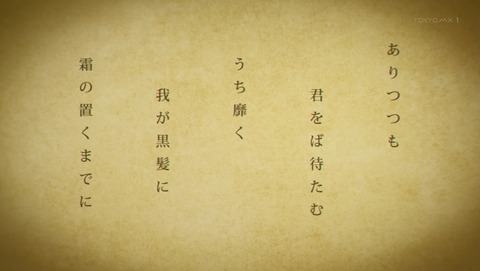 ありつつも
君をば待たむ
うち靡く
我が黒髪に
霜の置くまでに
TOKYO MX 1